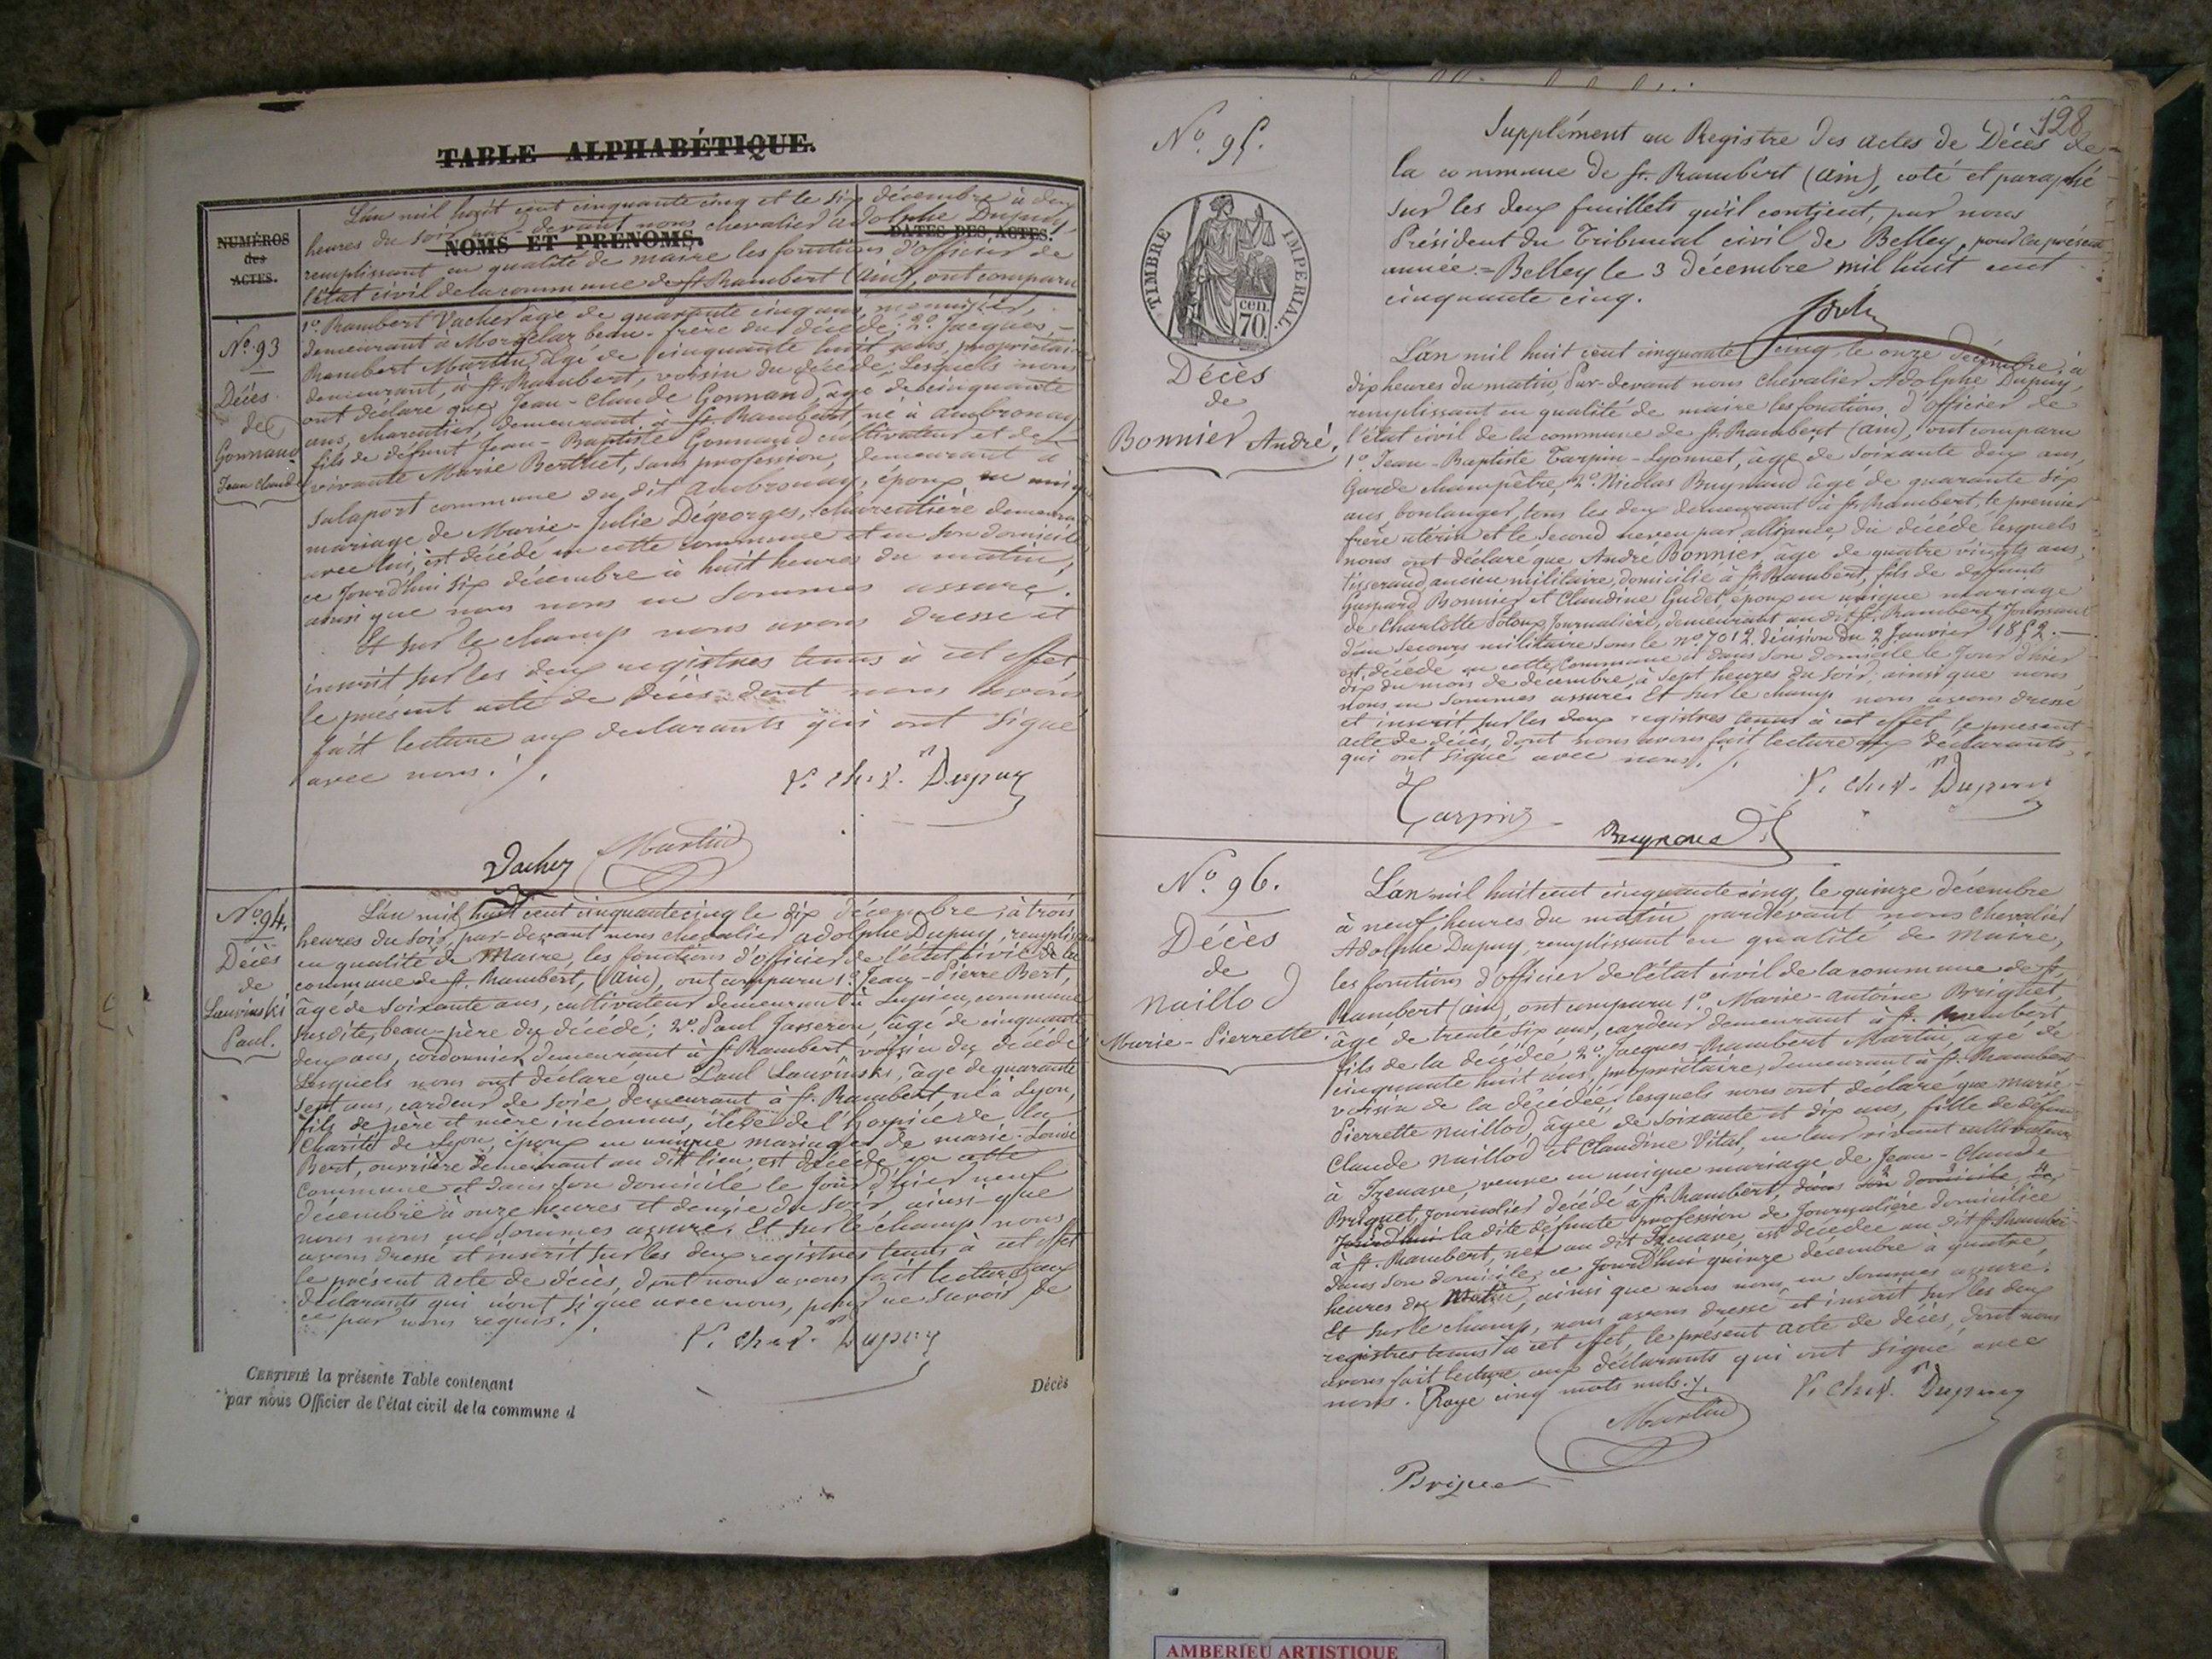 TABLE ALPHABÉTIQUE.
NUMÉROS
des
ACTES.
NOMS ET PRÉNOMS.
DATES DES ACTES.
L'an mil huit cent cinquante cinq et le six décembre à deux
heures du soir par-devant nous chevalier adolphe Dupuy
remplissant en qualité de maire les fonctions d'officier de
l'état civil de la commune de St Rambert (ain), ont comparu
No. 93
Décès
de
Gonnand
Jean Claude
1o. Rambert Vacher âgé de quarante cinq ans, menuisier,
demeurant à Morgelaz beau-frère du décédé; 2o. Jacques-
Rambert Martin, âgé de cinquante huit ans, propriétaire
demeurant à St. Rambert, voisin du décédé; Lesquels nous
ont déclaré que Jean-Claude Gonnand, âgé de cinquante
ans, charcutier, demeurant à St. Rambert, né à ambronay
fils de défunt Jean-Baptiste Gonnand cultivateur et de
vivante Marie Berthet, sans profession, demeurant à
Salaport commune du dit ambronay, époux en unique
mariage de Marie-Julie Dégeorges, charcutière demeurant
avec lui, est décédé en cette commune et en son domicile
ce jourd'hui six décembre à huit heures du matin,
ainsi que nous nous en sommes assuré.
Et sur le champ nous avons dressé et
inscrit sur les deux registres tenus à cet effet
le présent acte de décès dont nous avons
fait lecture aux déclarants qui ont signé
avec nous.
V. Chev. Dupuy
Vacher Martin
No. 94.
Décès
de
Lauvinski
Paul.
L'an mil huit cent cinquante cinq le dix décembre, à trois
heures du soir, par-devant nous chevalier adolphe Dupuy, remplissant
en qualité de Maire, les fonctions d'officier de l'état civil de la
commune de St. Rambert, (ain), ont comparu 1o. Jean-Pierre Bert,
âgé de soixante ans, cultivateur demeurant à Lupieu, commune
susdite, beau-père du décédé; 2o. Paul Jasseron, âgé de cinquante
deux ans, cordonnier, demeurant à St Rambert voisin du décédé
Lesquels nous ont déclaré que Paul Lauvinski, âgé de quarante
sept ans, cardeur de soie, demeurant à St. Rambert, né à Lyon,
fils de père et mère inconnus, élève de l'hospice de la
Charité de Lyon, époux en unique mariage de marie-Louise
Bert, ouvrière demeurant au dit lieu est décédé en cette
commune et dans son domicile le jour d'hier neuf
décembre à onze heures et demie du soir, ainsi que
nous nous en sommes assuré. Et sur le champ nous
avons dressé et inscrit sur les deux registres tenus à cet effet
le présent acte de décès, dont nous avons fait lecture aux
déclarants qui n'ont signé avec nous, pour ne savoir de
ce par nous requis.
V. Chev. Dupuy
CERTIFIÉ la présente Table contenant Décès
par nous Officier de l'état civil de la commune d
128
Supplément au Registre des actes de Décès de
la commune de St. Rambert (ain), coté et paraphé
sur les deux feuillets qu'il contient, par nous
Président du Tribunal civil de Belley, pour la présente
année. = Belley le 3 décembre mil huit cent
cinquante cinq.
No. 95.
TIMBRE IMPERIAL.
70 cen
Décès
de
Bonnier André.
L'an mil huit cent cinquante cinq, le onze décembre, à
dix heures du matin, Par-devant nous Chevalier Adolphe Dupuy,
remplissant en qualité de maire les fonctions, d'officier de
l'état civil de la commune de St. Rambert (ain), ont comparu
1o. Jean-Baptiste Tarpin-Lyonnet, âgé de soixante deux ans,
Garde champêtre, 2o. Nicolas Buynand âgé de quarante six
ans boulanger, tous les deux demeurant à St. Rambert, le premier
frère utérin et le second neveu par alliance, du décédé lesquels
nous ont déclaré que André Bonnier, âgé de quatre vingts ans,
tisserand ancien militaire, domicilié à St. Rambert, fils de défunts
Gaspard Bonnier et Claudine Gudet, époux en unique mariage
de Charlotte Soloux journalière, demeurant au dit St. Rambert, jouissant
d'un secours militaire sous le no 7012 décision du 2 Janvier 1852.-
est décédé en cette commune et dans son domicile le jour d'hier
dix du mois de décembre, à sept heures du soir, ainsi que nous
nous en sommes assuré. Et sur le champ nous avons dressé
et inscrit sur les deux registres tenus à cet effet le présent
acte de décès, dont nous avons fait lecture aux déclarants
qui ont signé avec nous.
V. Chev. Dupuy
Tarpin
Buynand
No. 96.
Décès
de
Naillod
Marie-Pierrette.
L'an mil huit cent cinquante cinq, le quinze décembre
à neuf heures du matin pardevant nous Chevalier
Adolphe Dupuy, remplissant en qualité de Maire,
les fonctions d'officier de l'état civil de la commune de St.
Rambert (ain), ont comparu 1o. Marie-Antoine Briguet,
âgé de trente six ans, cardeur demeurant à St. Rambert,
fils de la décédée, 2o. Jacques-Rambert Martin, âgé de
cinquante huit ans, propriétaire, demeurant à St. Rambert
voisin de la décédée lesquels nous ont déclaré que marie
Pierrette Naillod, âgée de soixante et dix ans, fille de défunts
Claude Naillod et Claudine Vital, en leur vivant cultivateurs
à Izenave, veuve en unique mariage de Jean-Claude
Briguet, journalier décédé à St. Rambert, dans son domicile ce
jourd'hui la dite défunte profession de journalière domiciliée
à St. Rambert, née au dit Izenave, est décédée au dit St. Rambert
dans son domicile, ce jourd'hui quinze décembre à quatre
heures du Matin, ainsi que nous nous en sommes assuré.
Et sur le champ, nous avons dressé et inscrit sur les deux
registres tenus à cet effet, le présent acte de décès, dont nous
avons fait lecture aux déclarants qui ont signé avec
nous. Rayé cinq mots nuls.
V. Chev. Dupuy
Martin
Briguet
AMBERIEU ARTISTIQUE